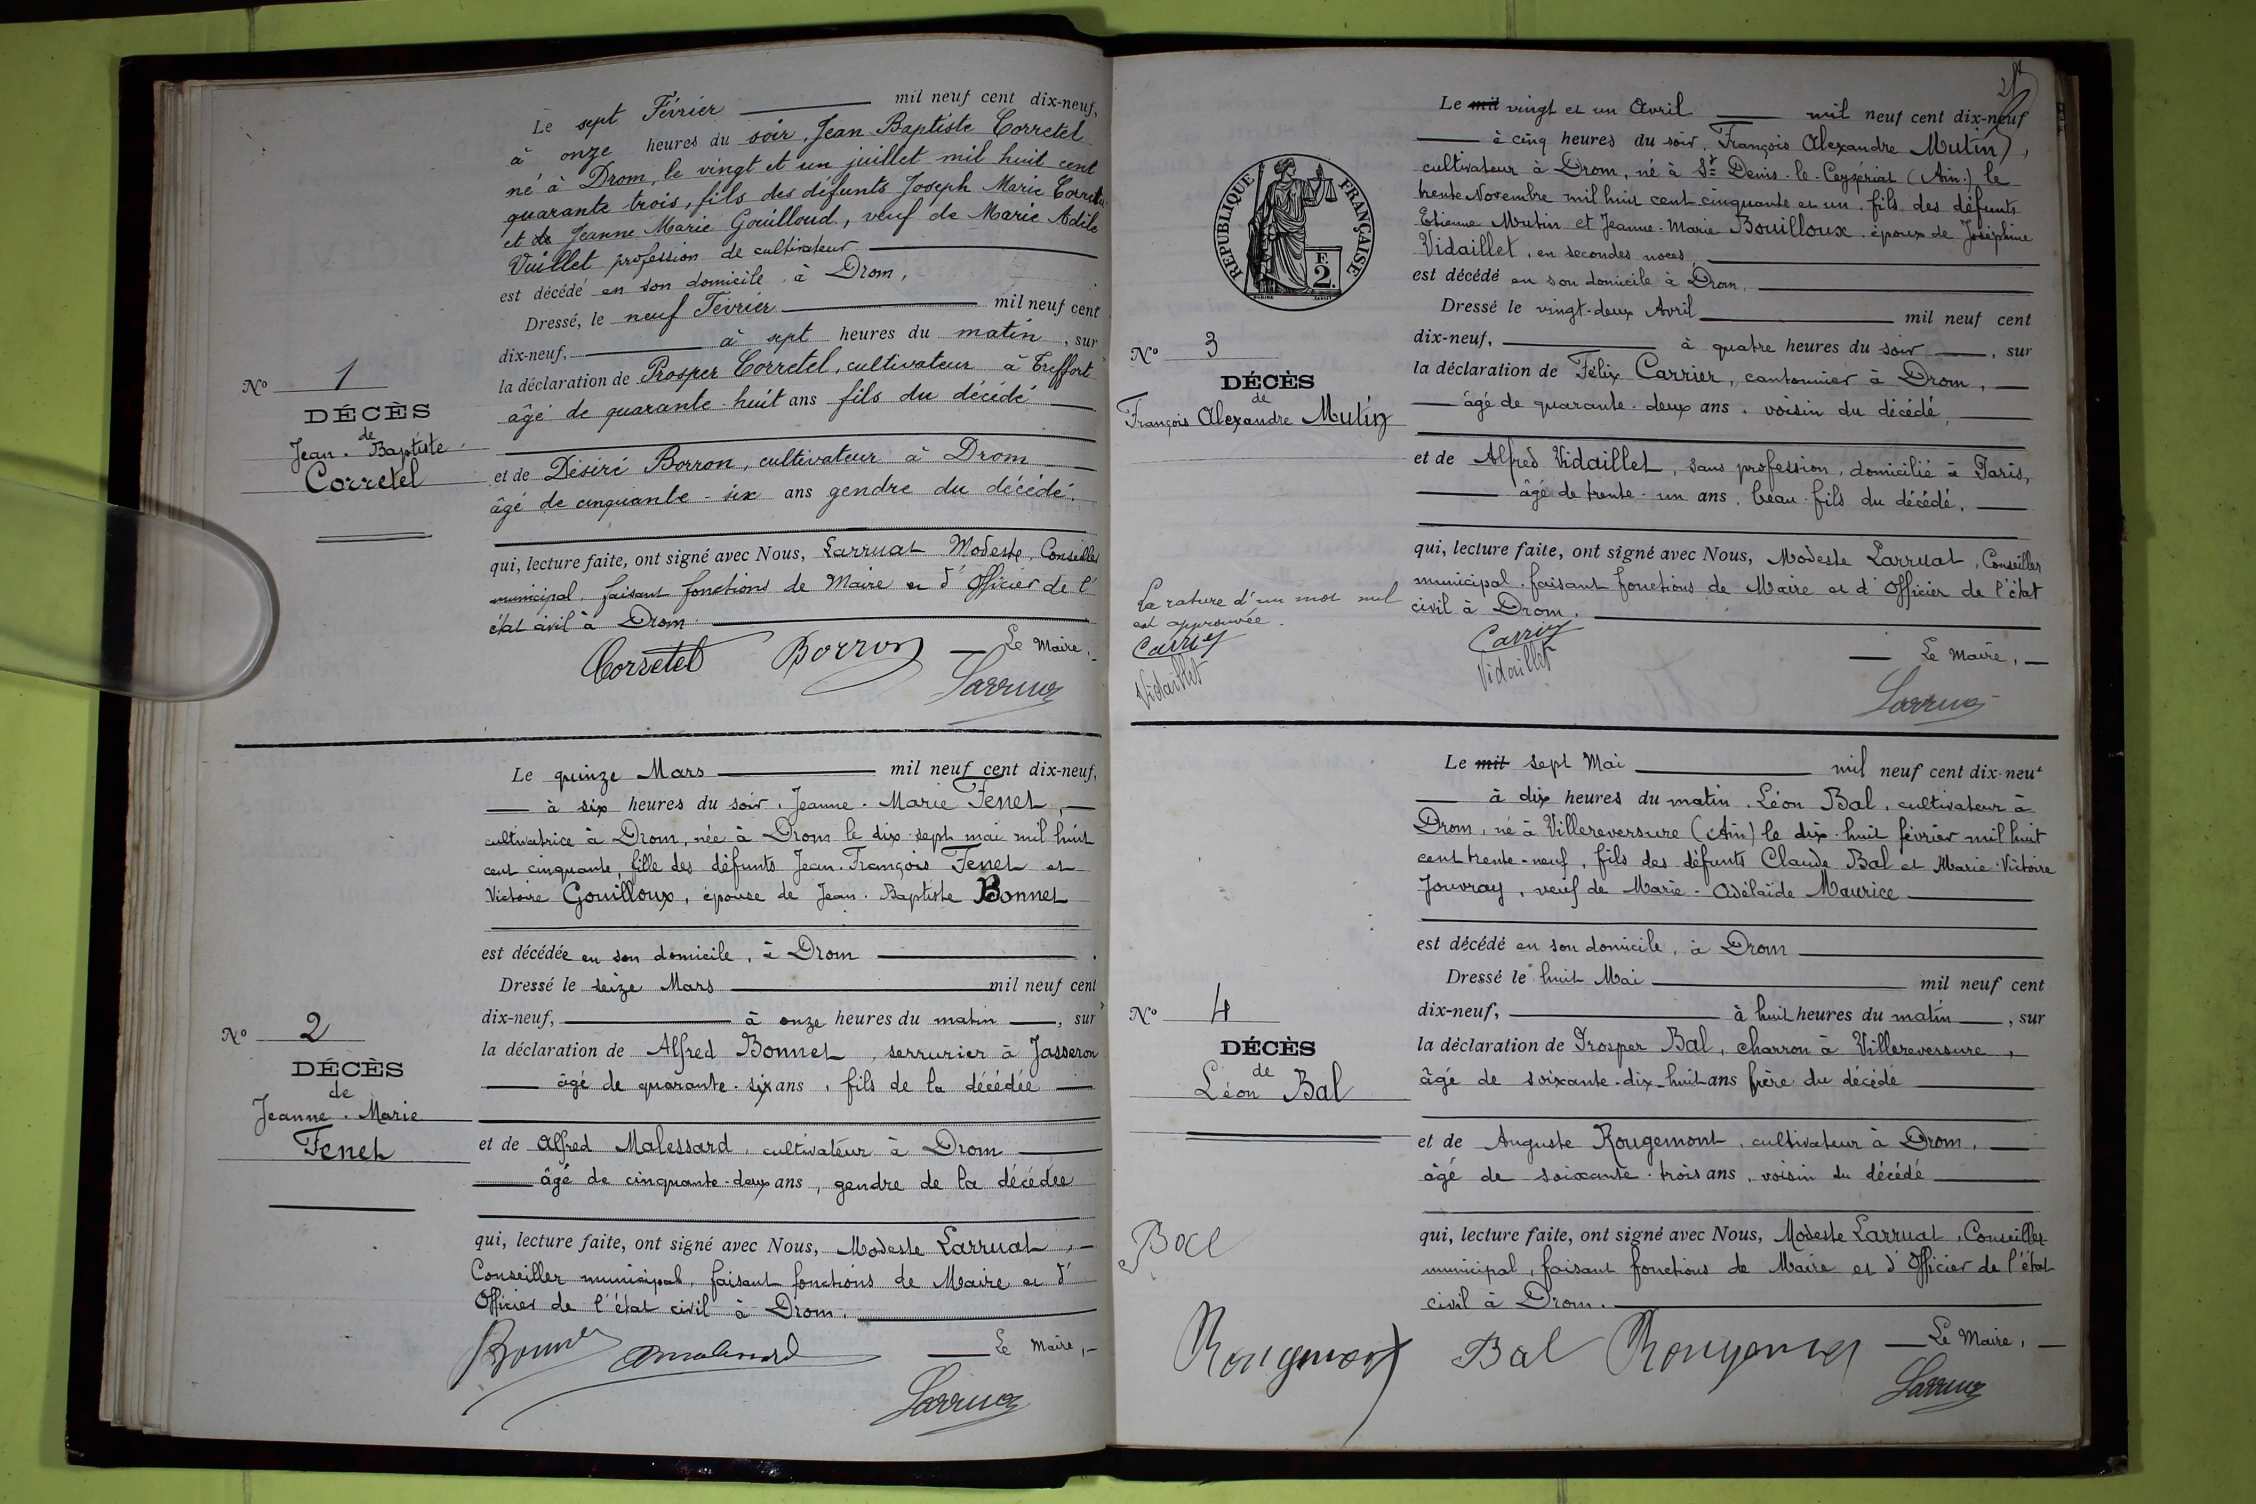 Le sept Février mil neuf cent dix-neuf,
à onze heures du soir, Jean Baptiste Corretel
né à Drom, le vingt et un juillet mil huit cent
quarante trois, fils des défunts Joseph Marie Corretel
et de Jeanne Marie Gouilloud, veuf de Marie Adèle
Vuillet profession de cultivateur
est décédé en son domicile, à Drom,
Dressé, le neuf Février mil neuf cent
dix-neuf, à sept heures du matin, sur
la déclaration de Prosper Corretel, cultivateur à Treffort
âgé de quarante-huit ans fils du décédé
et de Désiré Borron, cultivateur à Drom
âgé de cinquante-six ans gendre du décédé.
qui, lecture faite, ont signé avec Nous, Larruat Modeste, Conseiller
municipal, faisant fonctions de Maire et d'Officier de l'
état civil à Drom.
Le Maire,
Corretel Borron Larruat
No 1
DÉCÈS
de
Jean-Baptiste
Corretel
Le quinze Mars mil neuf cent dix-neuf,
à six heures du soir, Jeanne-Marie Fenet,
cultivatrice à Drom, née à Drom le dix-sept mai mil huit
cent cinquante, fille des défunts Jean-François Fenet et
Victoire Gouilloux, épouse de Jean-Baptiste Bonnet
est décédée en son domicile, à Drom
Dressé le seize Mars mil neuf cent
dix-neuf, à onze heures du matin, sur
la déclaration de Alfred Bonnet, serrurier à Jasseron
âgé de quarante-six ans, fils de la décédée
et de Alfred Malessard, cultivateur à Drom
âgé de cinquante-deux ans, gendre de la décédée
qui, lecture faite, ont signé avec Nous, Modeste Larruat,
Conseiller municipal, faisant fonctions de Maire et d'
Officier de l'état civil à Drom.
Le Maire,
Bonnet Malessard Larruat
No 2
DÉCÈS
de
Jeanne-Marie
Fenet
Le mil vingt et un Avril mil neuf cent dix-neuf
à cinq heures du soir, François Alexandre Mutin,
cultivateur à Drom, né à St Denis-le-Ceyzériat (Ain) le
trente Novembre mil huit cent cinquante et un, fils des défunts
Etienne Mutin et Jeanne-Marie Bouilloux, époux de Joséphine
Vidaillet, en secondes noces,
est décédé en son domicile à Drom.
Dressé le vingt-deux Avril mil neuf cent
dix-neuf, à quatre heures du soir, sur
la déclaration de Félix Carrier, cantonnier à Drom,
âgé de quarante-deux ans, voisin du décédé,
et de Alfred Vidaillet, sans profession, domicilié à Paris,
âgé de trente-un ans, beau-fils du décédé,
qui, lecture faite, ont signé avec Nous, Modeste Larruat, Conseiller
municipal, faisant fonctions de Maire et d'Officier de l'état
civil à Drom.
Le Maire,
Carrier
Vidaillet
Larruat
RÉPUBLIQUE FRANÇAISE
F.
2.
No 3
DÉCÈS
de
François Alexandre Mutin
La rature d'un mot nul
est approuvée.
Carrier
Vidaillet
Le mil sept Mai mil neuf cent dix-neuf
à dix heures du matin, Léon Bal, cultivateur à
Drom, né à Villereversure (Ain) le dix-huit février mil huit
cent trente-neuf, fils des défunts Claude Bal et Marie-Victoire
Jouvray, veuf de Marie-Adélaïde Maurice
est décédé en son domicile, à Drom
Dressé le huit Mai mil neuf cent
dix-neuf, à huit heures du matin, sur
la déclaration de Prosper Bal, charron à Villereversure,
âgé de soixante-dix-huit ans frère du décédé
et de Auguste Rougemont, cultivateur à Drom,
âgé de soixante-trois ans, voisin du décédé
qui, lecture faite, ont signé avec Nous, Modeste Larruat, Conseiller
municipal, faisant fonctions de Maire et d'Officier de l'état
civil à Drom.
Le Maire,
Bal Rougemont Larruat
No 4
DÉCÈS
de
Léon Bal
Bal
Rougemont